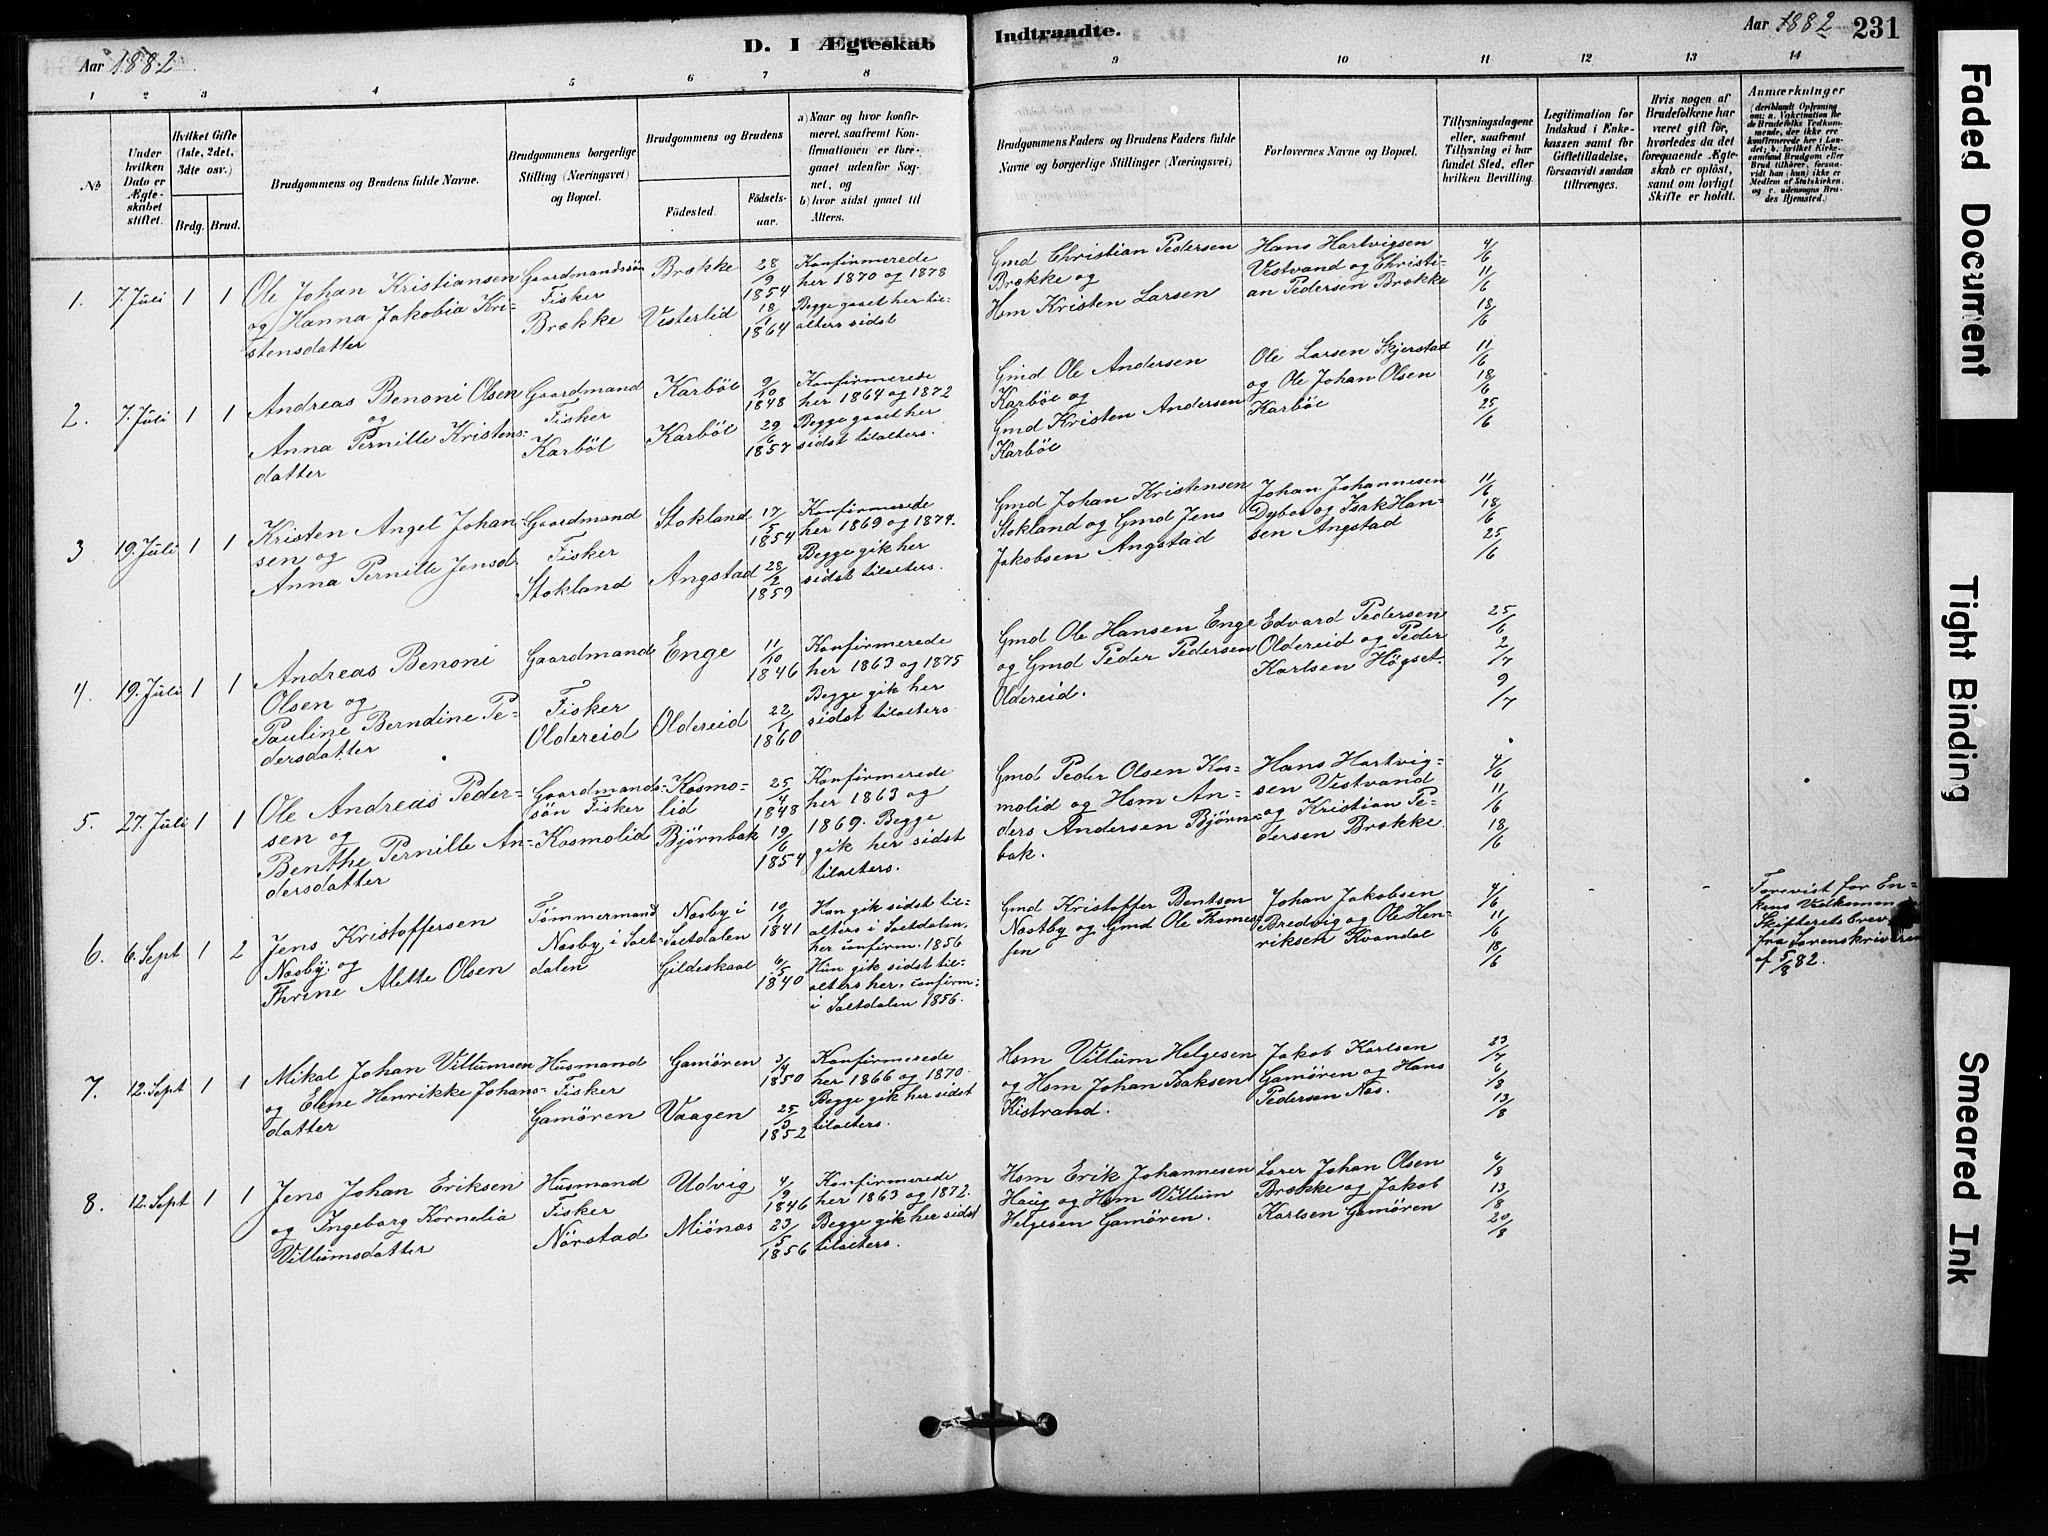 Aar 1882
D. I Ægteskab
Indtraadte.
Aar 1882
231
1
2
3
4
5
6
7
8
9
10
11
12
13
14
№
Under hvilken Dato er Ægteskabet stiftet.
Hvilket Gifte (1ste, 2det, 3dte osv.)
Brdg.
Brud.
Brudgommens og Brudens fulde Navne.
Brudgommens borgerlige Stilling (Næringsvei) og Bopæl.
Brudgommens og Brudens
Födested.
Födselsaar.
a) Naar og hvor konfirmeret, saafremt Konfirmationen er foregaaet udenfor Sognet, og
b) hvor sidst gaaet til Alters.
Brudgommens Faders og Brudens Faders fulde Navne og borgerlige Stillinger (Næringsvei)
Forlovernes Navne og Bopæl.
Tillysningsdagene eller, saafremt Tillysning ei har fundet Sted, efter hvilken Bevilling.
Legitimation for Indskud i Enkekassen samt for Giftetilladelse, forsaavidt saadan tiltrænges.
Hvis nogen af Brudefolkene har været gift för, hvorledes da det foregaaende Ægteskab er oplöst, samt om lovligt Skifte er holdt.
Anmærkninger
(deriblandt Oplysning om: a. Vakcination for de Brudefolks Vedkommende, der ikke ere konfirmerede her i Landet; b. hvilket Kirkesamfund Brudgom eller Brud tilhörer, forsaavidt han (hun) ikke er Medlem af Statskirken, og c. udensogns Brudes Hjemsted.)
1. 7. Juli 1 1
Ole Johan Kristiansen
og Hanna Jakobia Kri-
stensdatter
Gaardmandssön
Fisker
Brække
Brække
Vesterlid
28/9 1854
18/1 1864
Konfirmerede
her 1870 og 1878
Begge gaaet her til-
alters sidst
Gmd Christian Pedersen
Brække og
Hsm Kristen Larsen
Hans Hartvigsen
Vestvand og Christi-
an Pedersen Brække
4/6
11/6
18/6
2. 7. Juli 1 1
Andreas Benoni Olsen
og
Anna Pernille Kristens-
datter
Gaardmand
Fisker
Karböl
Karböl
Karböl
9/10 1848
29/6 1857
Konfirmerede
her 1864 og 1872
Begge gaaet her
sidst tilalters.
Gmd Ole Andersen
Karböl og
Gmd Kristen Andersen
Karböl
Ole Larsen Skjerstad
og Ole Johan Olsen
Karböl
11/6
18/6
25/6
3 19. Juli 1 1
Kristen Angel Johan-
sen og
Anna Pernille Jensd.
Gaardmand
Fisker
Stokland
Stokland
Angstad
17/5 1854
28/2 1859
Konfirmerede
her 1869 og 1874.
Begge gik her
sidst tilalters.
Gmd Johan Kristensen
Stokland og Gmd Jens
Jakobsen Angstad
Johan Johannesen
Dybor og Isak Han-
sen Angstad
11/6
18/6
25/6
4. 19. Juli 1 1
Andreas Benoni
Olsen og
Pauline Berndine Pe-
dersdatter
Gaardmand
Fisker
Oldereid
Enge
Oldereid
11/10 1846
22/1 1860
Konfirmerede
her 1863 og 1875
Begge gik her
sidst tilalters
Gmd Ole Hansen Enge
og Gmd Peder Pedersen
Oldereid.
Edvard Pedersen
Oldereid og Peder
Karlsen Högset.
25/6
2/7
9/7
5. 27. Juli 1 1
Ole Andreas Peder-
sen og
Benthe Pernille An-
dersdatter
Gaardmands-
sön Fisker
Kosmolid
Kosmo-
lid
Björnbak
25/4 1848
19/6 1854
Konfirmerede
her 1863 og
1869. Begge
gik her sidst
tilalters.
Gmd Peder Olsen Kos-
molid og Hsm An-
ders Andersen Björn-
bak.
Hans Hartvig-
sen Vestvand
og Kristian Pe-
dersen Brække
4/6
11/6
18/6
6. 6. Sept 1 2
Jens Kristoffersen
Nasby og
Thrine Alette Olsen
Tömmermand
Nasby i Salt-
dalen
Nasby i
Saltdalen
Gildeskaal
19/1 1841
6/5 1840
Han gik sidst til-
alters i Saltdalen,
her confirm. 1856
Hun gik sidst til-
alters her, confirm.
i Saltdalen 1856.
Gmd Kristoffer Bentsen
Nastby og Gmd Ole Thomes-
sen
Johan Jakobsen
Bredvig og Ole Hen-
riksen Kvandal
4/6
11/6
18/6
Forevist for En-
kens Vedkommen
Skifteretsbrev
fra Sorenskriveren
af 5/8 82.
7. 12. Sept 1 1
Mikal Johan Villumsen
og Elene Henrikke Johans-
datter
Husmand
Fisker
Gamören
Gamören
Vaagen
3/4 1850
25/3 1852
Konfirmerede
her 1866 og 1870.
Begge gik her sidst
tilalters.
Hsm Villum Helgesen
og Hsm Johan Isaksen
Kistrand.
Jakob Karlsen
Gamören og Hans
Pedersen Næs.
23/7
6/8
13/8
8. 12. Sept 1 1
Jens Johan Eriksen
og Ingeborg Kornelia
Villumsdatter
Husmand
Fisker
Nörstad
Udvig
Miönæs
4/9 1846
23/5 1856
Konfirmerede
her 1863 og 1872.
Begge gik her sidst
tilalters.
Hsm Erik Johannesen
Haug og Hsm Villum
Helgesen Gamören.
Lærer Johan Olsen
Brække og Jakob
Karlsen Gamören
6/8
13/8
20/8
Faded Document
Tight Binding
Smeared Ink